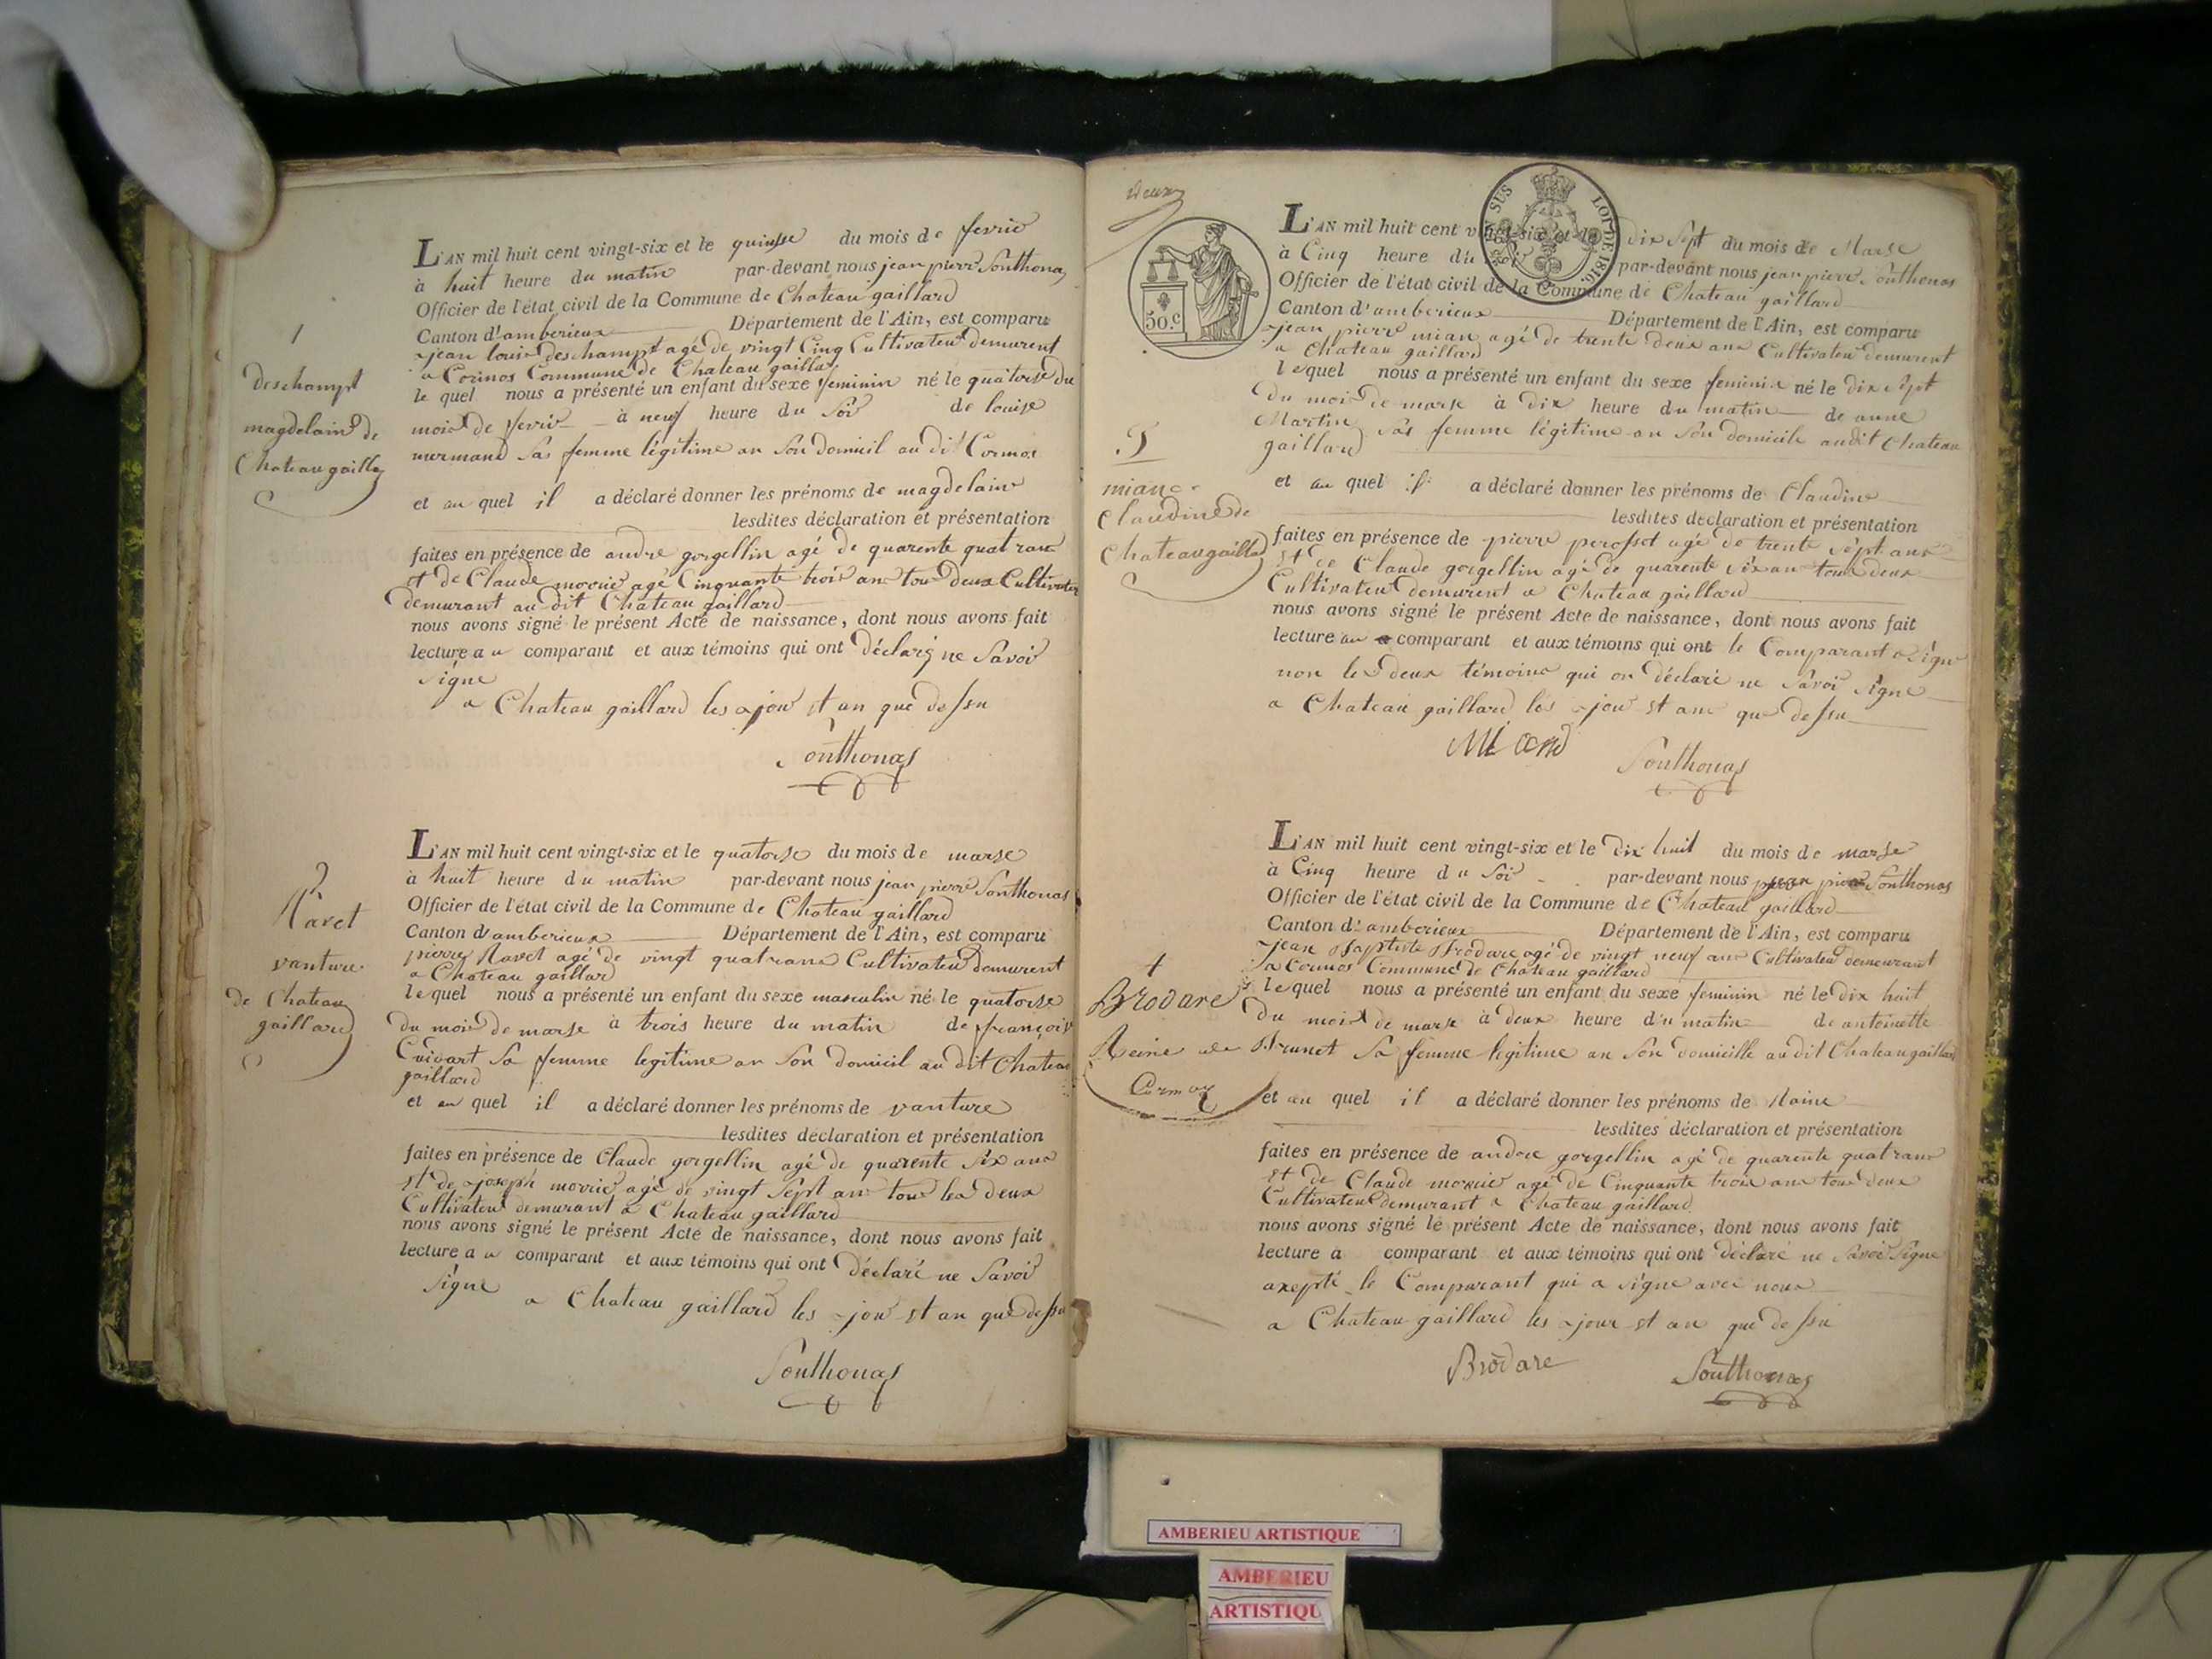 1
deschampt
magdelaine de
Chateaugaillar
L'AN mil huit cent vingt-six et le quinsse du mois de fevrié
à huit heure du matin par-devant nous jean pierre Sonthonas
Officier de l'état civil de la Commune de Chateau gaillard
Canton d'amberieux Département de l'Ain, est comparu
jean louis deschampt agé de vingt Cinq Cultivateur demurent
a Cormos Commune de Chateau gaillar
le quel nous a présenté un enfant du sexe feminin né le quatorse du
mois de fevrié à neuf heure du Soir de louise
mermand Sas femme légitime an Son domicil au dit Cormos
et au quel il a déclaré donner les prénoms de magdelaine
lesdites déclaration et présentation
faites en présence de andré gorgellin agé de quarente quatrans
et de Claude morrié agé Cinquante trois ans tous deux Cultivateur
demurant au dit Chateau gaillard
nous avons signé le présent Acte de naissance, dont nous avons fait
lecture a u comparant et aux témoins qui ont déclaré ne Savoir
signé
a Chateau gaillard les jour et an que dessu
Sonthonas
2
Ravet
vanture
de Chateau
gaillard
L'AN mil huit cent vingt-six et le quatorse du mois de marse
à huit heure du matin par-devant nous jean pierre Sonthonas
Officier de l'état civil de la Commune de Chateau gaillard
Canton d'amberieux Département de l'Ain, est comparu
pierre Ravet agé de vingt quatrans Cultivateur demurent
a Chateau gaillard
lequel nous a présenté un enfant du sexe masculin né le quatorse
du mois de marse à trois heure du matin de françoise
Cuidart Sa femme legitime an Son domicil au dit Chateau
gaillard
et au quel il a déclaré donner les prénoms de vanture
lesdites déclaration et présentation
faites en présence de Claude gorgellin agé de quarente six ans
et de joseph morrié agé de vingt sept an tous les deux
Cultivateur demurant a Chateau gaillard
nous avons signé le présent Acte de naissance, dont nous avons fait
lecture a u comparant et aux témoins qui ont déclaré ne Savoir
signé
a Chateau gaillard les jour et an que dessu
Sonthonas
deux
50.C
SUS
LOI DE 1816
3
mianc
Claudine de
Chateaugaillard
L'AN mil huit cent vingt-six et le dix sept du mois de Marse
à Cinq heure du par-devant nous jean pierre Sonthonas
Officier de l'état civil de la Commune de Chateau gaillard
Canton d'amberieux Département de l'Ain, est comparu
jean pierre mian agé de trente deux ans Cultivateur demurent
a Chateau gaillard
lequel nous a présenté un enfant du sexe feminin né le dix sept
du mois de marse à dix heure du matin de anne
Martin sas femme légitime an son domicile audit Chateau
gaillard
et au quel il a déclaré donner les prénoms de Claudine
lesdites déclaration et présentation
faites en présence de pierre perosset agé de trente sept ans
et de Claude gorgellin agé de quarente six an tous deux
Cultivateur demurent a Chateau gaillard
nous avons signé le présent Acte de naissance, dont nous avons fait
lecture au comparant et aux témoins qui ont le Comparant a signé
non les deux témoins qui on déclaré ne savoir signé
a Chateau gaillard les jour et an que dessu
Sonthonas
4
Brodare
Reine de
Cormoz
L'AN mil huit cent vingt-six et le dix huit du mois de marse
à Cinq heure du Soir par-devant nous jean pierre Sonthonas
Officier de l'état civil de la Commune de Chateau gaillard
Canton d'amberieux Département de l'Ain, est comparu
jean Baptiste Brodare agé de vingt neuf ans Cultivateur demeurant
a Cormos Commune de Chateau gaillard
lequel nous a présenté un enfant du sexe feminin né le dix huit
du mois de marse à deux heure du matin de antoinette
Brunet Sa femme legitime an Son domicille au dit Chateau gaillard
et au quel il a déclaré donner les prénoms de Raine
lesdites déclaration et présentation
faites en présence de andre gorgellin agé de quarente quatrans
et de Claude morrié agé de Cinquante trois ans tous deux
Cultivateur demurant a Chateau gaillard
nous avons signé le présent Acte de naissance, dont nous avons fait
lecture a comparant et aux témoins qui ont déclaré ne savoir signé
axepté le Comparant qui a signé avec nous
a Chateau gaillard les jour et an que dessu
Brodare Sonthonas
AMBERIEU ARTISTIQUE
AMBERIEU
ARTISTIQU